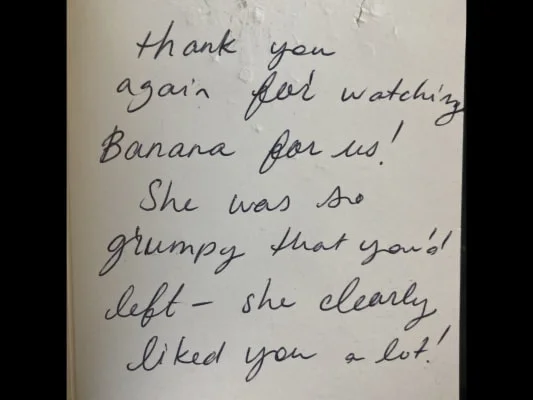 thank you
again for watching
Banana for us!
She was so
grumpy that you'd
left - she clearly
liked you a lot!